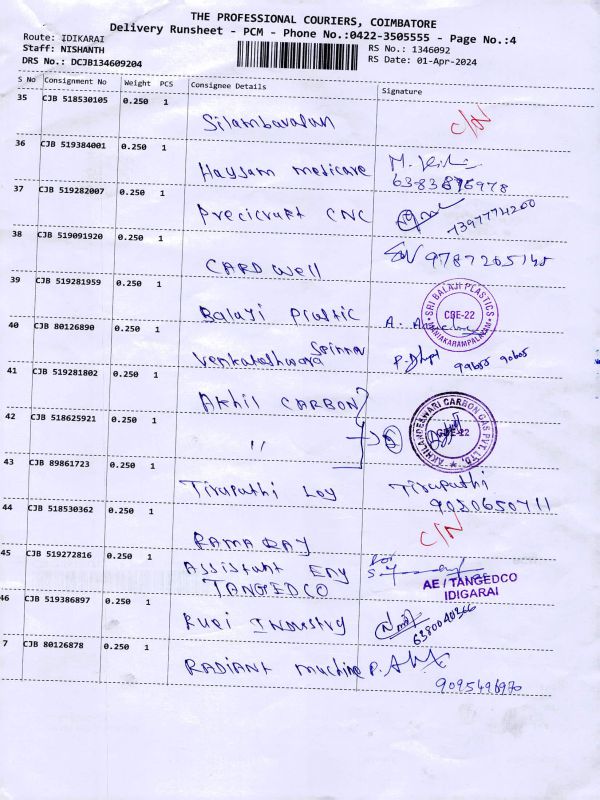 THE PROFESSIONAL COURIERS, COIMBATORE
Delivery Runsheet - PCM - Phone No.:0422-3505555 - Page No.:4
Route: IDIKARAI
Staff: NISHANTH
DRS No.: DCJB134609204
RS No.: 1346092
RS Date: 01-Apr-2024
S No Consignment No Weight PCS Consignee Details Signature
35 CJB 518530105 0.250 1
Silambarasan C/N
36 CJB 519384001 0.250 1
Haysam medicare M.
6383876978
37 CJB 519282007 0.250 1
Precicraft CNC 7397774200
38 CJB 519091920 0.250 1
CARD well 9787205148
39 CJB 519281959 0.250 1
Balaji Plastic A.
SRI BALAJI PLASTICS
CBE-22
40 CJB 80126890 0.250 1
Venkateshwara Spinner P.
99655 90605
41 CJB 519281802 0.250 1
Akhil CARBON
AKHILANDESWARI CARBON GAS PVT. LTD.
CBE-22
42 CJB 518625921 0.250 1
"
43 CJB 89861723 0.250 1
Tirupathi Loy Tirupathi
9080650711
44 CJB 518530362 0.250 1
RAMARAY C/N
45 CJB 519272816 0.250 1
Assistant Eny
TANGEDCO
AE / TANGEDCO
IDIGARAI
46 CJB 519386897 0.250 1
Ruei INDUSTRY 6380040366
7 CJB 80126878 0.250 1
RADIANT machine P.
9095496970